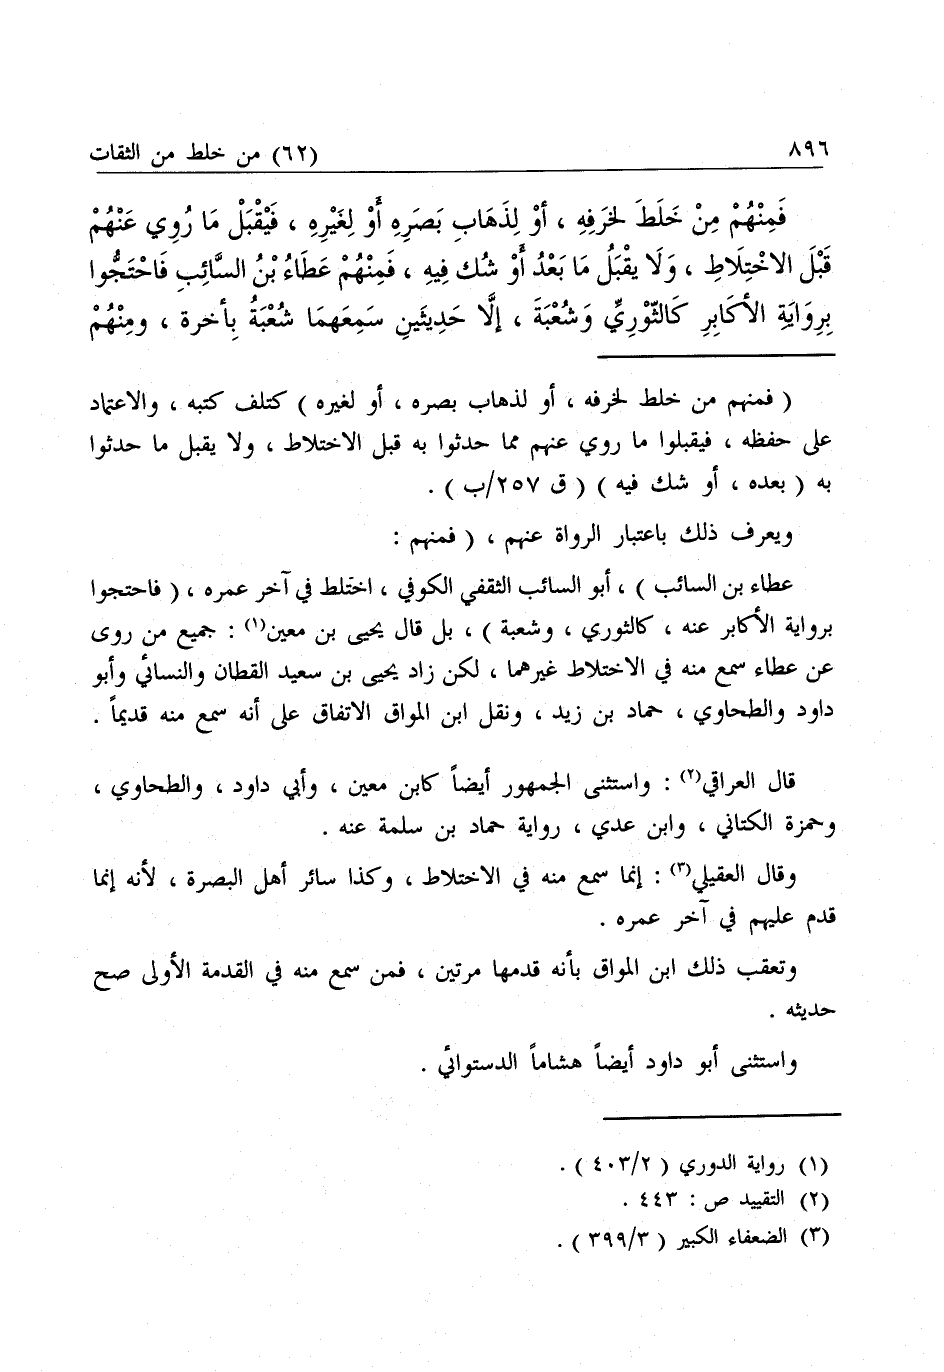 ٨٩٦ (٦٢) من خلط من الثقات
فَمِنْهُمْ مِنْ خَلَطَ لخَرَفِهِ ، أوْ لِذَهَابِ بَصَرِهِ أَوْ لِغَيْرِهِ ، فَيْقْبَلْ مَا رُوِي عَنْهُمْ
قَبْلَ الاخْتِلَاطِ ، وَلَا يقْبَلُ مَا بَعْدُ أَوْ شُك فِيهِ ، فَمِنْهُمْ عَطَاءُ بْنُ السَّائِبِ فَاحْتَجُّوا
بِرِوَايَةِ الأكَابِرِ كَالثّوْرِيِّ وَشُعْبَةَ ، إلَّا حَدِيثَينِ سَمِعَهمَا شُعْبَةُ بِأخرة ، ومِنْهُمْ
( فمنهم من خلط لخرفه ، أو لذهاب بصره ، أو لغيره ) كتلف كتبه ، والاعتماد
على حفظه ، فيقبلوا ما روي عنهم مما حدثوا به قبل الاختلاط ، ولا يقبل ما حدثوا
به ( بعده ، أو شك فيه ) ( ق ٢٥٧/ب ) .
ويعرف ذلك باعتبار الرواة عنهم ، ( فمنهم :
عطاء بن السائب ) ، أبو السائب الثقفي الكوفي ، اختلط في آخر عمره ، ( فاحتجوا
برواية الأكابر عنه ، كالثوري ، وشعبة ) ، بل قال يحيى بن معين(١) : جميع من روى
عن عطاء سمع منه في الاختلاط غيرهما ، لكن زاد يحيى بن سعيد القطان والنسائي وأبو
داود والطحاوي ، حماد بن زيد ، ونقل ابن المواق الاتفاق على أنه سمع منه قديماً .
قال العراقي(٢) : واستثنى الجمهور أيضاً كابن معين ، وأبي داود ، والطحاوي ،
وحمزة الكتاني ، وابن عدي ، رواية حماد بن سلمة عنه .
وقال العقيلي(٣) : إنما سمع منه في الاختلاط ، وكذا سائر أهل البصرة ، لأنه إنما
قدم عليهم في آخر عمره .
وتعقب ذلك ابن المواق بأنه قدمها مرتين ، فمن سمع منه في القدمة الأولى صح
حديثه .
واستثنى أبو داود أيضاً هشاماً الدستوائي .
(١) رواية الدوري ( ٤٠٣/٢ ) .
(٢) التقييد ص : ٤٤٣ .
(٣) الضعفاء الكبير ( ٣٩٩/٣ ) .